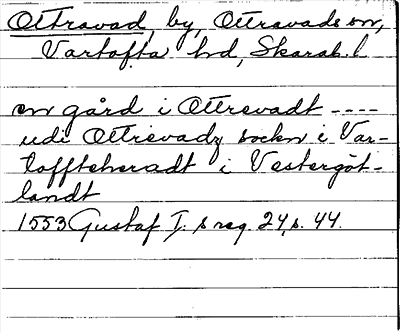 Ottravad, by, Ottravads sn,
Vartofta hd, Skarab. l
en gård i Ottrevadt ----
udi Ottrevadz sockn i Var-
toffteheradt i Vestergöt-
landt
1553 Gustaf I:s reg. 24, s. 44.